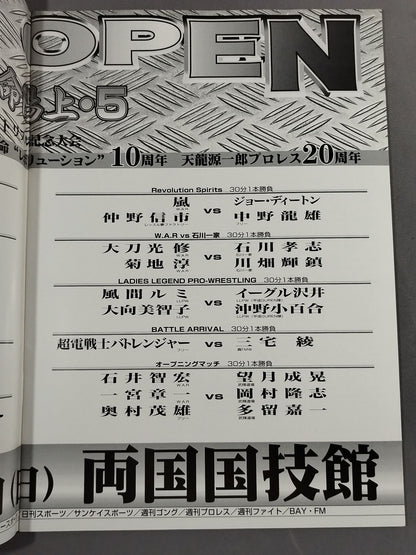 OPEN
上・5
記念大会
10周年 天龍源一郎プロレス20周年
Revolution Spirits 30分1本勝負
嵐 vs ジョー・ディートン
W.A.R
仲野信市 中野龍雄
フリー
W.A.R vs 石川一家 30分1本勝負
大刀光修 vs 石川孝志
W.A.R 石川一家
菊地淳 川畑輝鎮
W.A.R 石川一家
LADIES LEGEND PRO-WRESTLING 30分1本勝負
風間ルミ vs イーグル沢井
LLPW
大向美智子 沖野小百合
LLPW
BATTLE ARRIVAL 30分1本勝負
超電戦士バトレンジャー vs 三宅綾
フリー
オープニングマッチ 30分1本勝負
石井智宏 望月成晃
W.A.R 武輝道場
一宮章一 vs 岡村隆志
W.A.R 武輝道場
奥村茂雄 多留嘉一
フリー 武輝道場
(日) 両国国技館
日刊スポーツ／サンケイスポーツ／週刊ゴング／週刊プロレス／週刊ファイト／BAY・FM